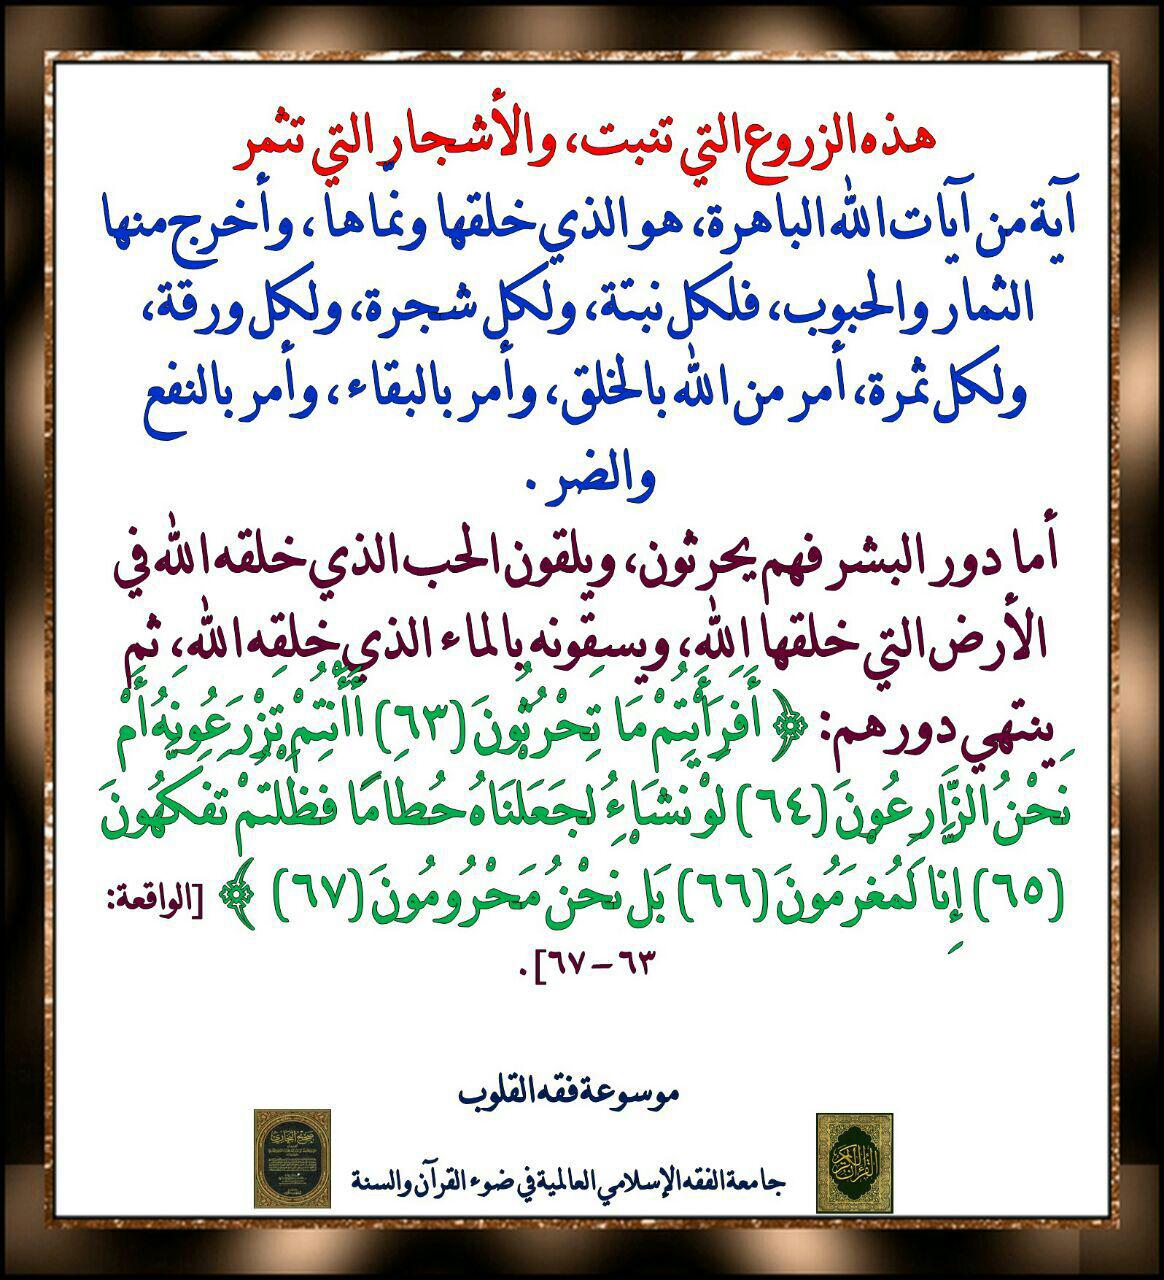 هذه الزروع التي تنبت، والأشجار التي تثمر
آية من آيات الله الباهرة، هو الذي خلقها ونمّاها ، وأخرج منها
الثمار والحبوب، فلكل نبتة، ولكل شجرة، ولكل ورقة،
ولكل ثمرة، أمر من الله بالخلق، وأمر بالبقاء ، وأمر بالنفع
والضر .
أما دور البشر فهم يحرثون، ويلقون الحب الذي خلقه الله في
الأرض التي خلقها الله، ويسقونه بالماء الذي خلقه الله، ثم
ينتهي دورهم: ﴿ أَفَرَأَيْتُمْ مَا تَحْرُثُونَ (٦٣) أَأَنْتُمْ تَزْرَعُونَهُ أَمْ
نَحْنُ الزَّارِعُونَ (٦٤) لَوْ نَشَاءُ لَجَعَلْنَاهُ حُطَامًا فَظَلْتُمْ تَفَكَّهُونَ
(٦٥) إِنَّا لَمُغْرَمُونَ (٦٦) بَلْ نَحْنُ مَحْرُومُونَ (٦٧) ﴾ [الواقعة:
٦٣ – ٦٧] .
موسوعة فقه القلوب
جامعة الفقه الإسلامي العالمية في ضوء القرآن والسنة
صحيح البخاري
القرآن الكريم